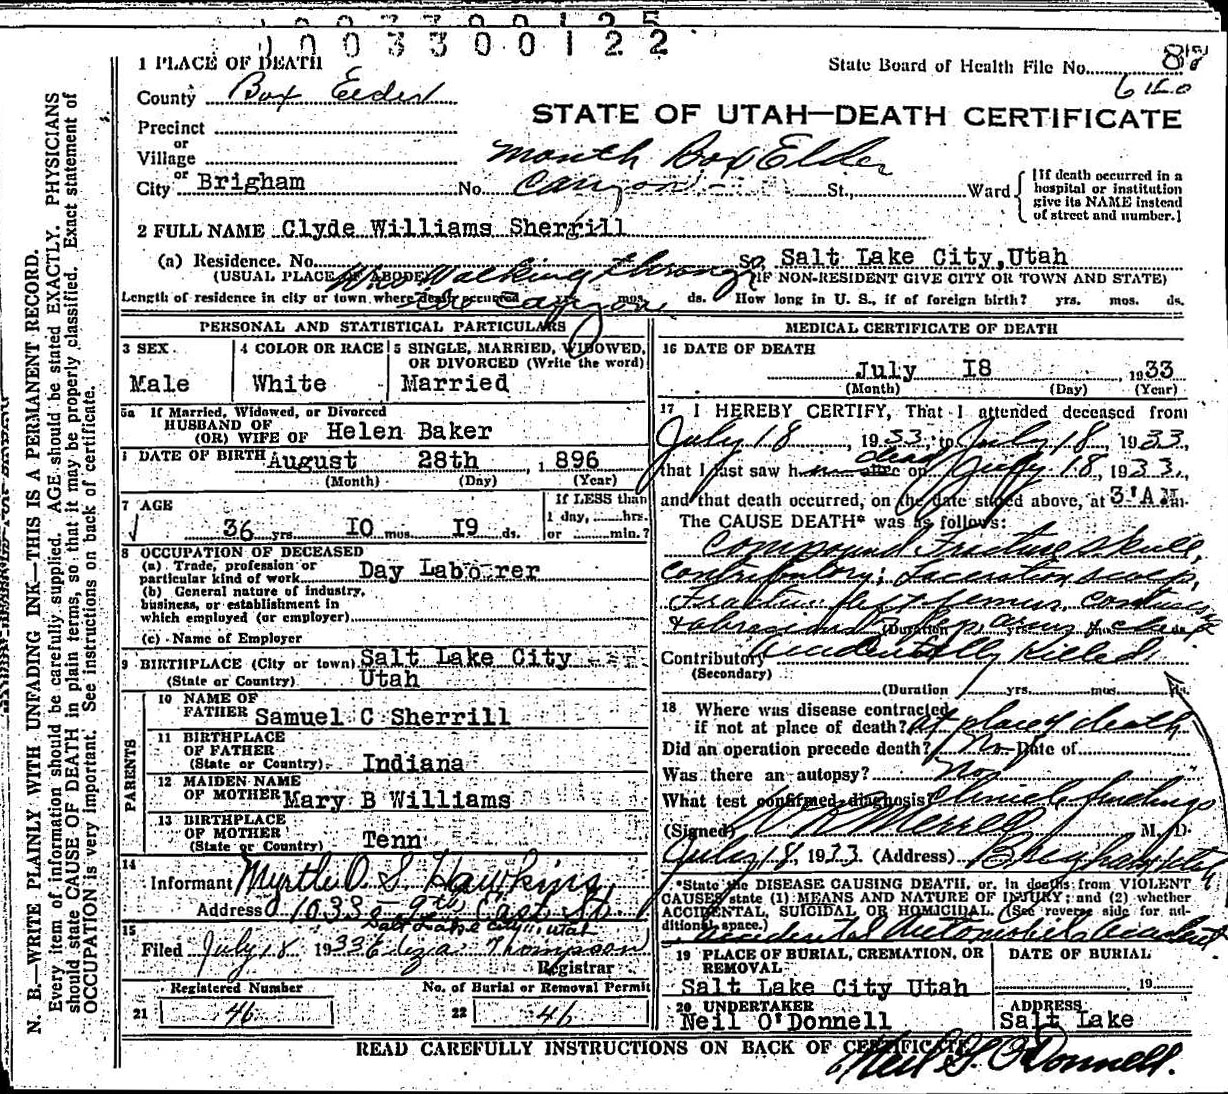 1 0 0 3 3 0 0 1 2 2
1 PLACE OF DEATH
State Board of Health File No.
County Box Elder
STATE OF UTAH—DEATH CERTIFICATE
Precinct
or
Village
Mouth Box Elder
City or Brigham No. Canyon St, Ward
[If death occurred in a hospital or institution give its NAME instead of street and number.]
2 FULL NAME Clyde Williams Sherrill
(a) Residence. No. So, Salt Lake City,Utah
(USUAL PLACE OF ABODE) Was Walking through (IF NON-RESIDENT GIVE CITY OR TOWN AND STATE)
Length of residence in city or town where death occurred yrs. mos. ds. How long in U. S., if of foreign birth? yrs. mos. ds.
the canyon
PERSONAL AND STATISTICAL PARTICULARS
3 SEX Male
4 COLOR OR RACE White
5 SINGLE, MARRIED, WIDOWED, OR DIVORCED (Write the word) Married
5a If Married, Widowed, or Divorced
HUSBAND OF
(OR) WIFE OF Helen Baker
DATE OF BIRTH August 28th, 1896
(Month) (Day) (Year)
7 AGE
36 yrs 10 mos. 19 ds.
If LESS than
1 day, hrs.
or min.?
8 OCCUPATION OF DECEASED
(a) Trade, profession or
particular kind of work Day Laborer
(b) General nature of industry,
business, or establishment in
which employed (or employer)
(c) Name of Employer
9 BIRTHPLACE (City or town) Salt Lake City
(State or Country) Utah
PARENTS
10 NAME OF
FATHER Samuel C Sherrill
11 BIRTHPLACE
OF FATHER
(State or Country) Indiana
12 MAIDEN NAME
OF MOTHER Mary B Williams
13 BIRTHPLACE
OF MOTHER
(State or Country) Tenn
14
Informant Myrtle O. S. Hawkins
Address 1033 - 9th East St.
Salt Lake City, Utah
15
Filed July 18 1933 Eliza Thompson
Registrar
Registered Number No. of Burial or Removal Permit
21 46 22 46
MEDICAL CERTIFICATE OF DEATH
16 DATE OF DEATH
July 18 1933
(Month) (Day) (Year)
17 I HEREBY CERTIFY, That I attended deceased from
July 18, 1933, to July 18, 1933,
dead
that I last saw h alive on July 18, 1933,
and that death occurred, on the date stated above, at 3 A M m.
The CAUSE DEATH* was as follows:
Compound Fracture skull,
Contributory: Laceration scalp,
Fracture left femur, contusions
& abrasions legs, arms & chest
(Duration yrs. mos. ds.
Contributory Accidentally Killed
(Secondary)
(Duration yrs. mos. ds.
18 Where was disease contracted
if not at place of death? at place of death
Did an operation precede death? No Date of
Was there an autopsy? No
What test confirmed diagnosis? Clinical findings
(Signed) Merrell M. D.
July 18, 1933 (Address) Brigham Utah
*State the DISEASE CAUSING DEATH, or, in deaths from VIOLENT
CAUSES state (1) MEANS AND NATURE OF INJURY; and (2) whether
ACCIDENTAL, SUICIDAL OR HOMICIDAL. (See reverse side for ad-
ditional space.)
Accidental Automobile Accident
19 PLACE OF BURIAL, CREMATION, OR
REMOVAL
Salt Lake City Utah
DATE OF BURIAL
, 19
20 UNDERTAKER
Neil O'Donnell
ADDRESS
Salt Lake
READ CAREFULLY INSTRUCTIONS ON BACK OF CERTIFICATE
Neil G. O'Donnell.
N. B.—WRITE PLAINLY WITH UNFADING INK—THIS IS A PERMANENT RECORD.
Every item of information should be carefully supplied. AGE should be stated EXACTLY. PHYSICIANS
should state CAUSE OF DEATH in plain terms, so that it may be properly classified. Exact statement of
OCCUPATION is very important. See instructions on back of certificate.